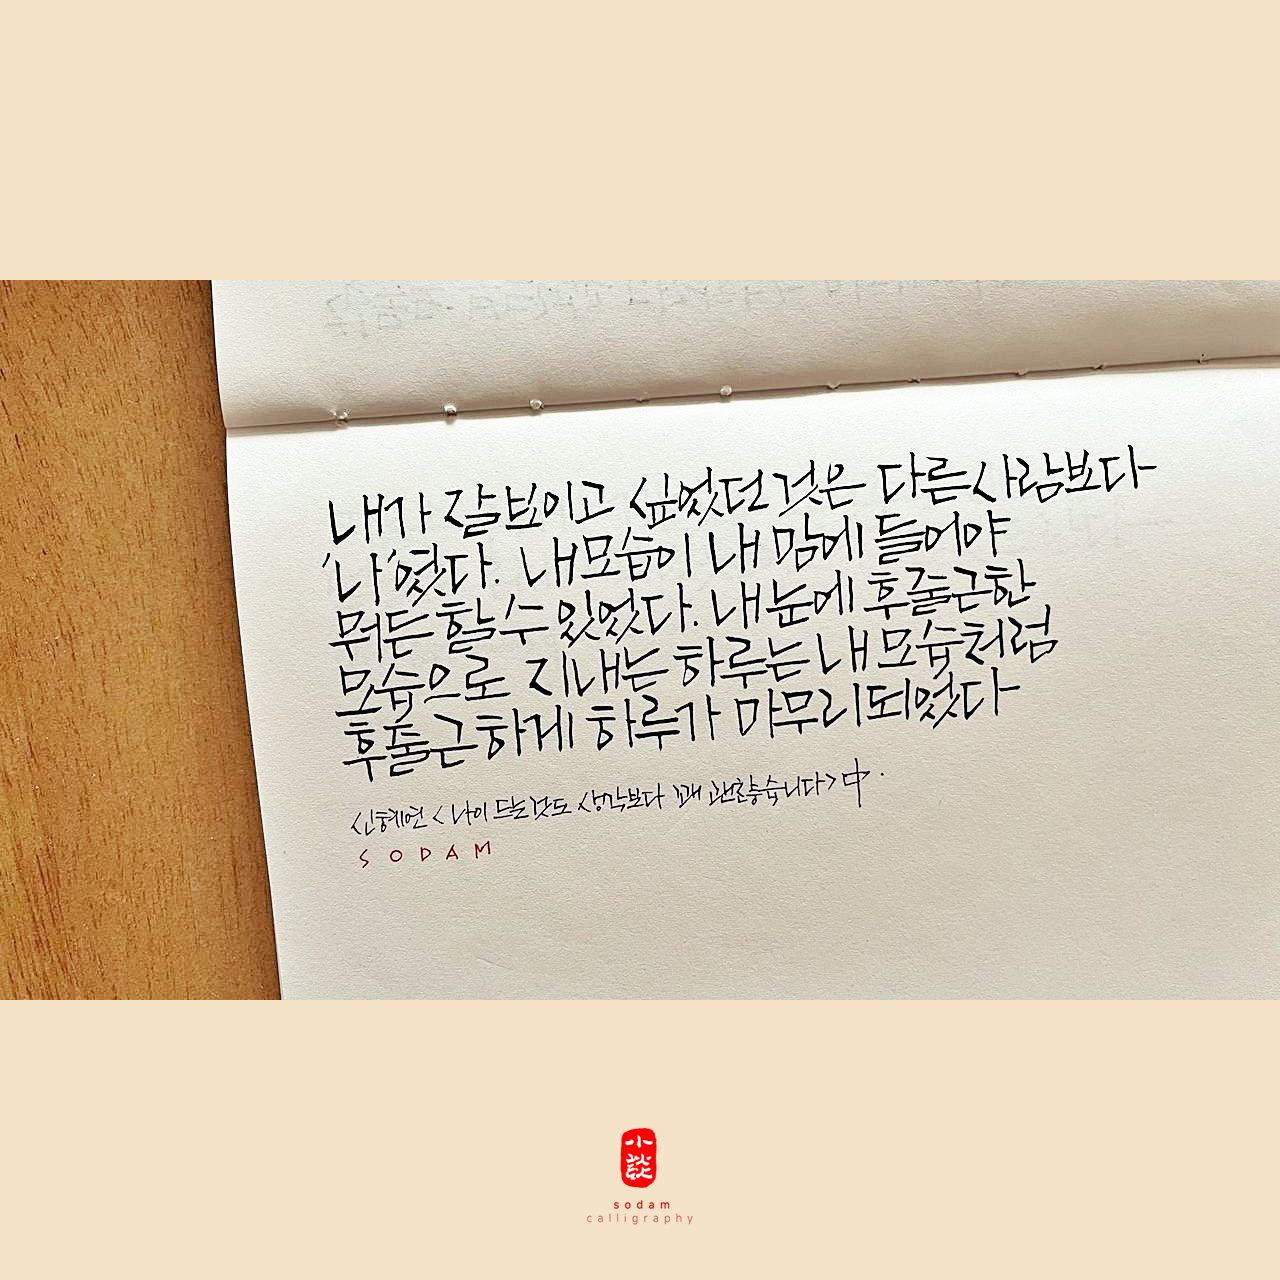 내가 잘 보이고 싶었던 것은 다른 사람보다
'나'였다. 내 모습이 내 맘에 들어야
뭐든 할 수 있었다. 내 눈에 후줄근한
모습으로 지내는 하루는 내 모습처럼
후줄근하게 하루가 마무리되었다
신혜연 <나이 드는 것도 생각보다 꽤 괜찮습니다> 中.
SODAM
小談
sodam
calligraphy